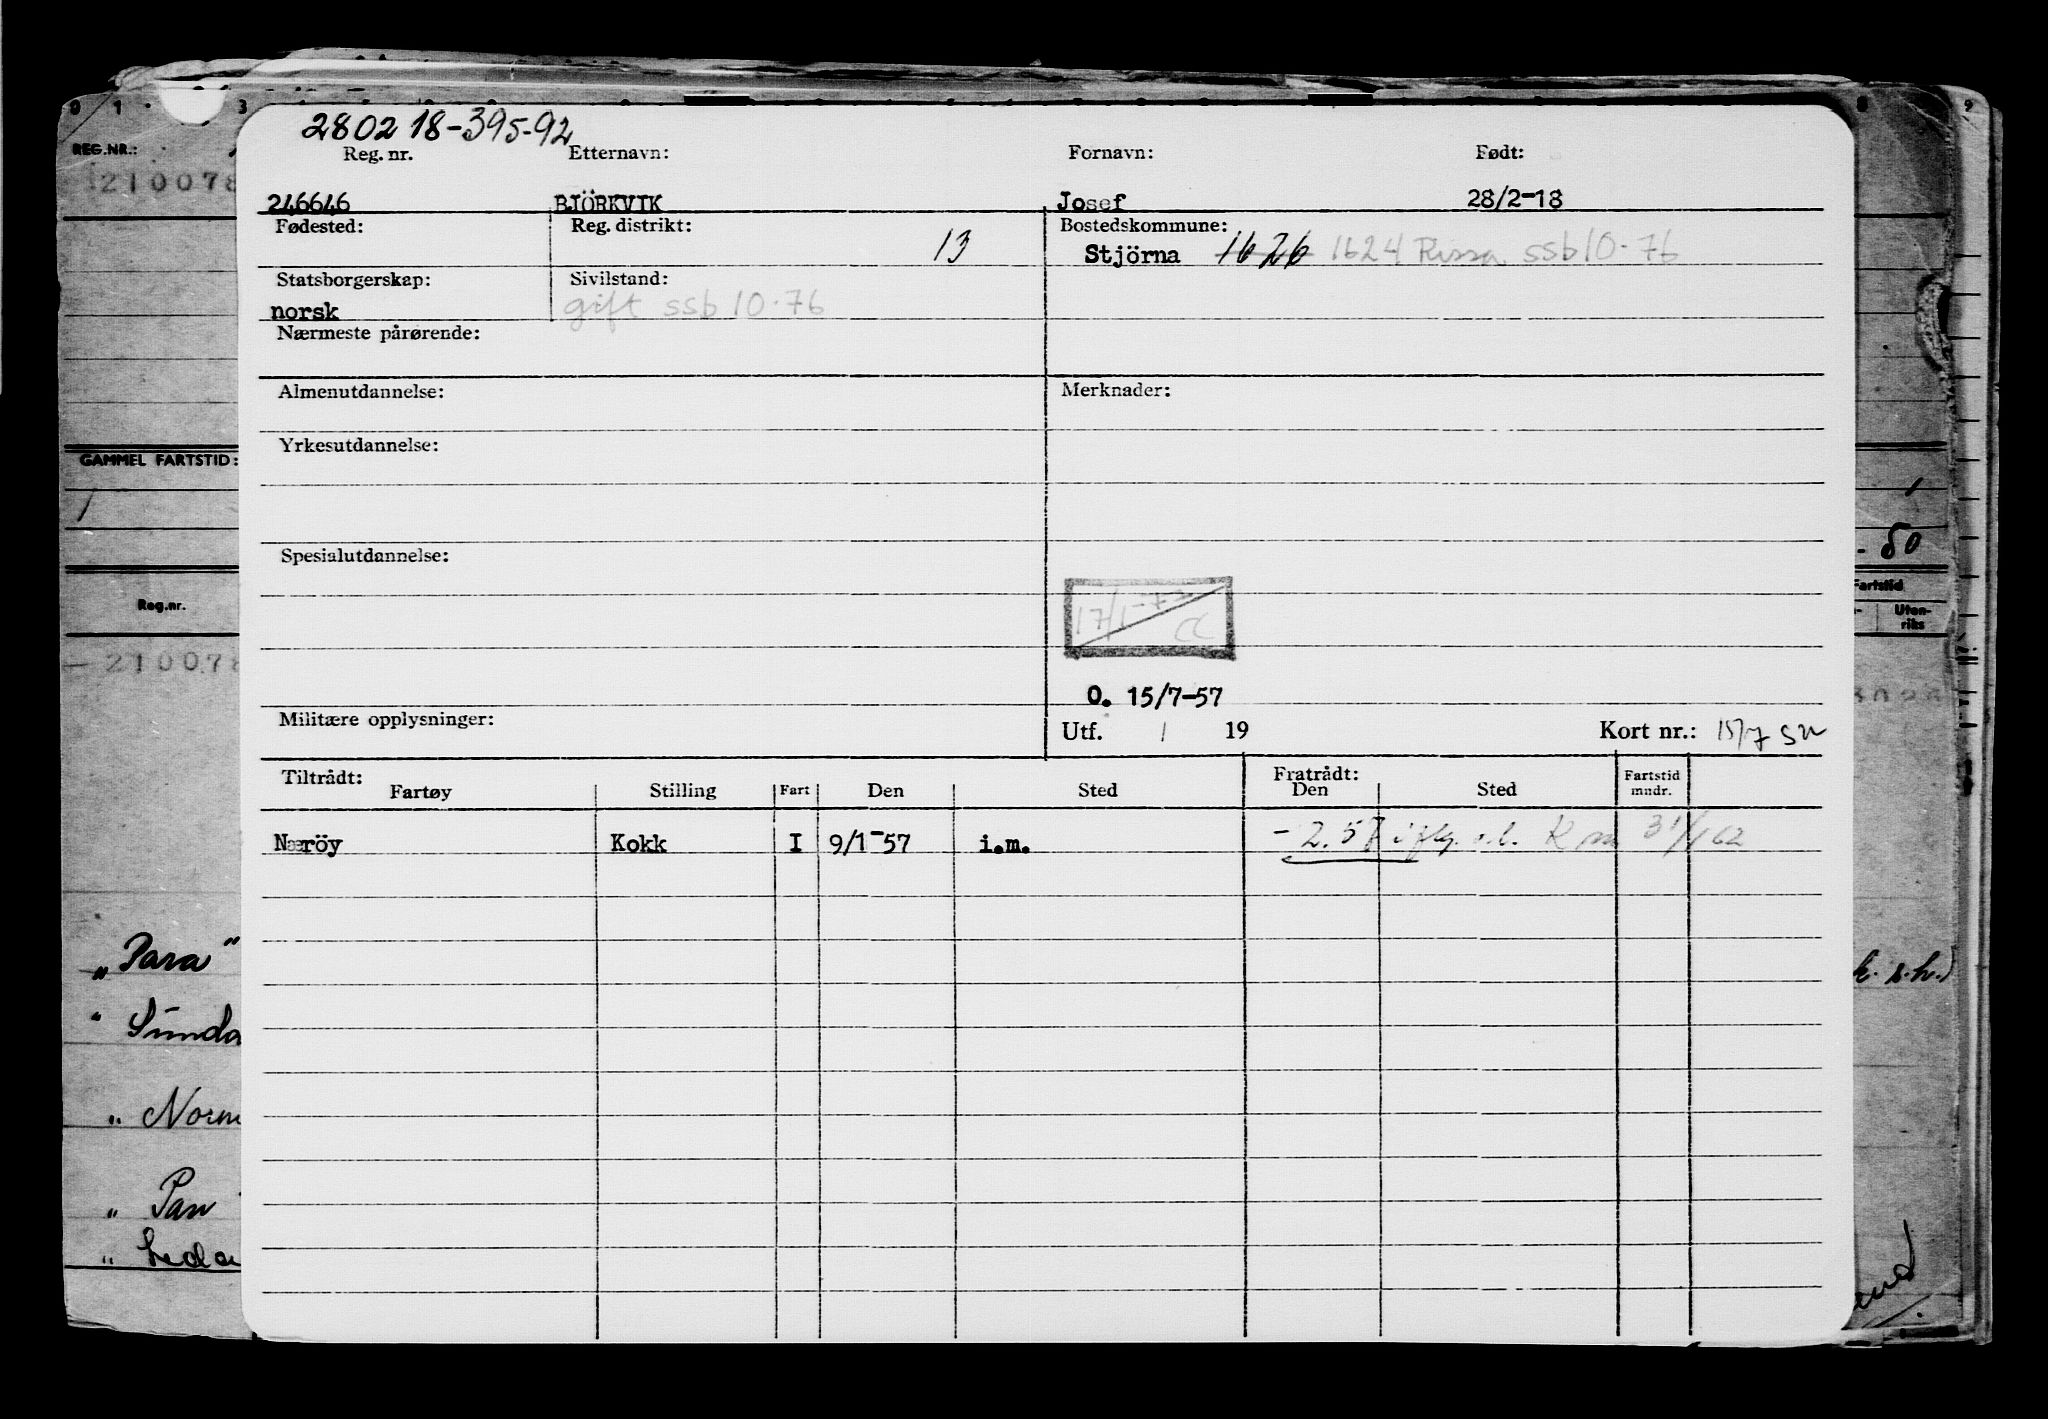 280218-395-92
Reg. nr. Etternavn: Fornavn: Født:
246646 BJÖRKVIK Josef 28/2-18
Fødested: Reg. distrikt: 13 Bostedskommune:
Stjörna 1626 1624 Rissa ssb 10-76
Statsborgerskap: Sivilstand:
norsk gift ssb 10-76
Nærmeste pårørende:
Almenutdannelse: Merknader:
Yrkesutdannelse:
Spesialutdannelse:
17/1-72 CC
O. 15/7-57
Militære opplysninger: Utf. / 19 Kort nr.: 15/7
Tiltrådt: Fratrådt:
Fartøy Stilling Fart Den Sted Den Sted Fartstid mndr.
Næröy Kokk I 9/1-57 i.m. - 2.57 31/1 62
REG.NR.:
210078
GAMMEL FARTSTID:
- 50
Fartstid
Reg.nr. Uten-
riks
- 210078
„Para"
" Sunda
k. s.h.)
" Norm
" Pan
" Leda